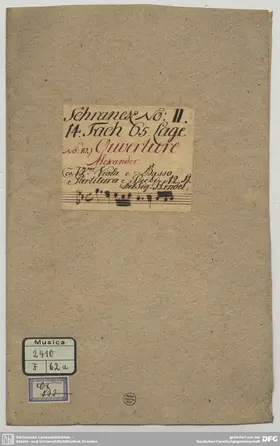 Schranck No: II.
14. Fach 65. Lage
No: 10.) Ouverture
Alexander
co VV.ni Viola e Basso
Partitura e
del Sig. Hendel.
Musica
2410
F 62a
Cx
572
Sächsische Landesbibliothek –
Staats- und Universitätsbibliothek Dresden
gefördert von der
Deutschen Forschungsgemeinschaft
DFG